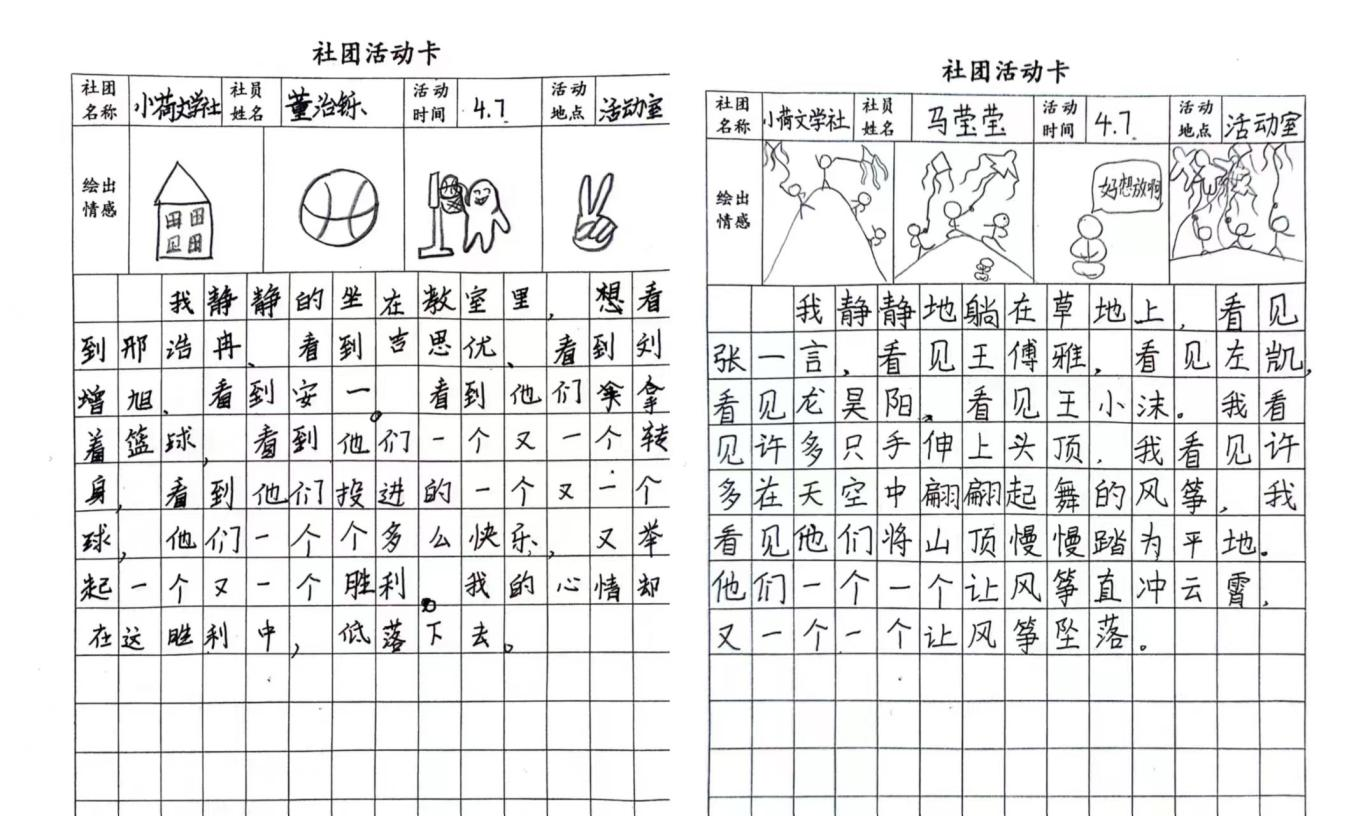 社团活动卡
社团名称 小荷文学社 社员姓名 董治铄 活动时间 4.7 活动地点 活动室
绘出情感
我静静的坐在教室里，想看
到邢浩冉、看到吉思优、看到刘
增旭、看到安一。看到他们拿拿
着篮球，看到他们一个又一个转
身，看到他们投进的一个又一个
球，他们一个个多么快乐，又举
起一个又一个胜利。我的心情却
在这胜利中，低落下去。
社团活动卡
社团名称 小荷文学社 社员姓名 马莹莹 活动时间 4.7 活动地点 活动室
绘出情感
好想放啊
我静静地躺在草地上，看见
张一言，看见王傅雅，看见左凯，
看见龙昊阳，看见王小沫。我看
见许多只手伸上头顶，我看见许
多在天空中翩翩起舞的风筝，我
看见他们将山顶慢慢踏为平地。
他们一个一个让风筝直冲云霄，
又一个一个让风筝坠落。